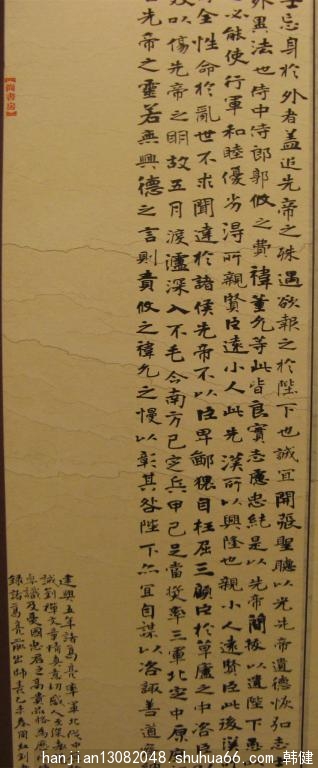 士忘身於外者蓋追先帝之殊遇欲報之於陛下也誠宜開張聖聽以光先帝遺德恢弘志
外異法也侍中侍郎郭攸之費禕董允等此皆良實志慮忠純是以先帝簡拔以遺陛下愚
必能使行軍和睦優劣得所親賢臣遠小人此先漢所以興隆也親小人遠賢臣此後漢
全性命於亂世不求聞達於諸侯先帝不以臣卑鄙猥自枉屈三顧臣於草廬之中咨臣
效以傷先帝之明故五月渡瀘深入不毛今南方已定兵甲已足當獎率三軍北定中原
告先帝之靈若無興德之言則責攸之禕允之慢以彰其咎陛下亦宜自謀以咨諏善道
建興五年諸葛亮率軍北伐中
誠劉禪文章情真意切感人至深
卓識及憂國忠君之高貴品格為歷
錄諸葛亮前出師表
尚書房
hanjian13082048.shuhua66.com.韩健